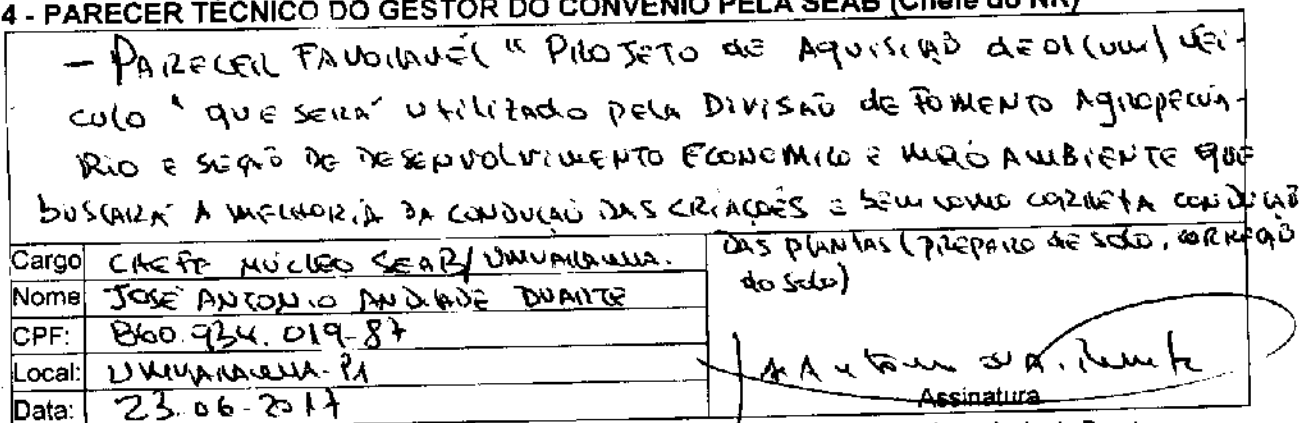 4 - PARECER TÉCNICO DO GESTOR DO CONVÊNIO PELA SEAB (Chefe do NR)
- PARECER FAVORAVÉL " PROJETO de AQUISIÇÃO de 01 (um) VEI-
CULO " QUE SERA' Utilizado pela DIVISÃO de FOMENTO AgROPECUÁ-
RIO E SEÇÃO DE DESENVOLVIMENTO ECONOMICO E MEIO AMBIENTE QUE
BUSCARA' A MELHORIA DA CONDUÇÃO DAS CRIAÇÕES E BEM COMO CORRETA CONDUÇÃO
DAS PLANTAS (PREPARO DE SOLO, CORREÇÃO
do Solo)
Cargo CHEFE NÚCLEO SEAB/UMUARAMA.
Nome JOSÉ ANTONIO ANDRADE DUARTE
CPF: 860.934.019-87
Local: UMUARAMA-PR
Data: 23.06-2017
Assinatura